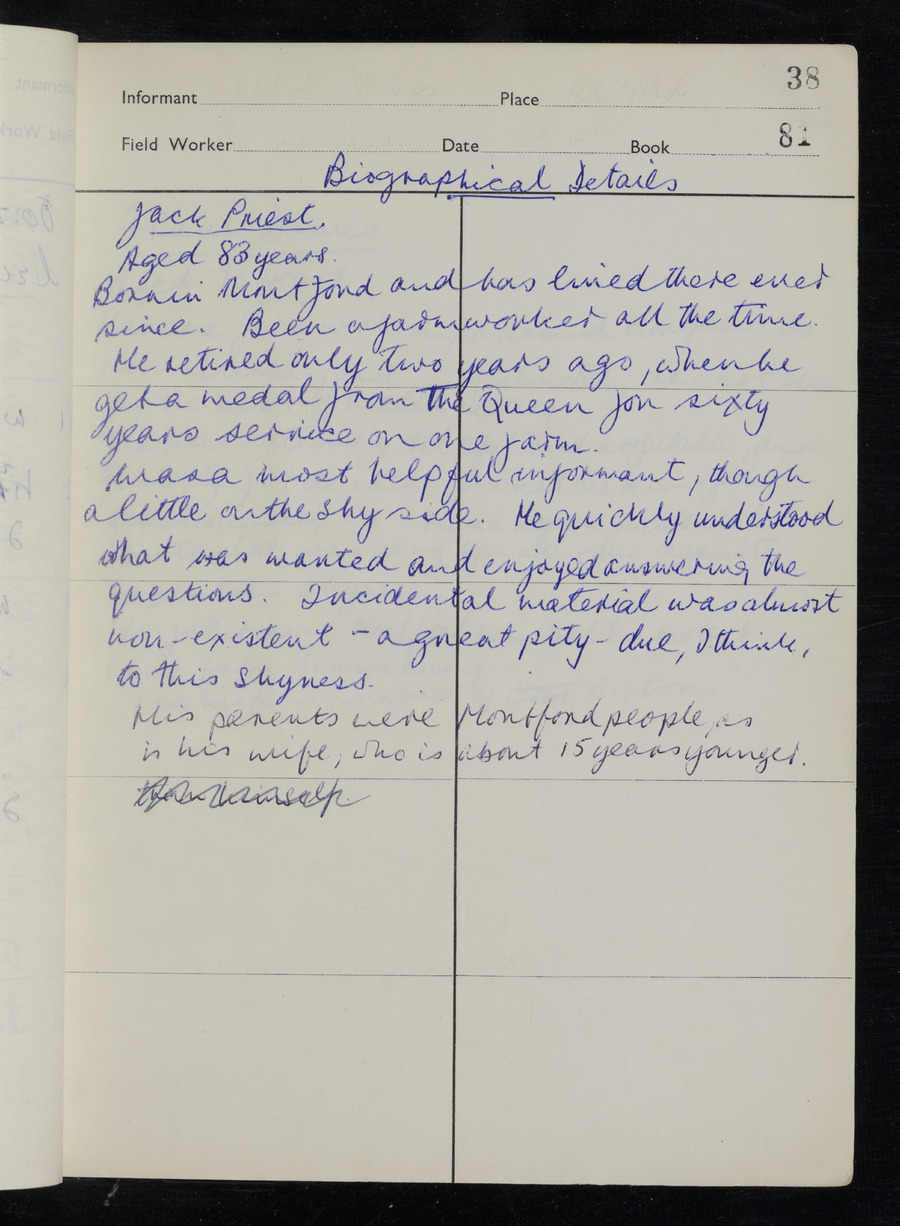 38
Informant Place
81
Field Worker Date Book
Biographical Details
Jack Priest.
Aged 83 years.
Born in Montford and has lived there ever
since. Been a farmworker all the time.
He retired only two years ago, when he
get a medal from the Queen for sixty
years service on one farm.
Was a most helpful informant, though
a little on the shy side. He quickly understood
what was wanted and enjoyed answering the
questions. Incidental material was almost
non-existent - a great pity - due, I think,
to this shyness.
His parents were Montford people, as
is his wife, who is about 15 years younger.